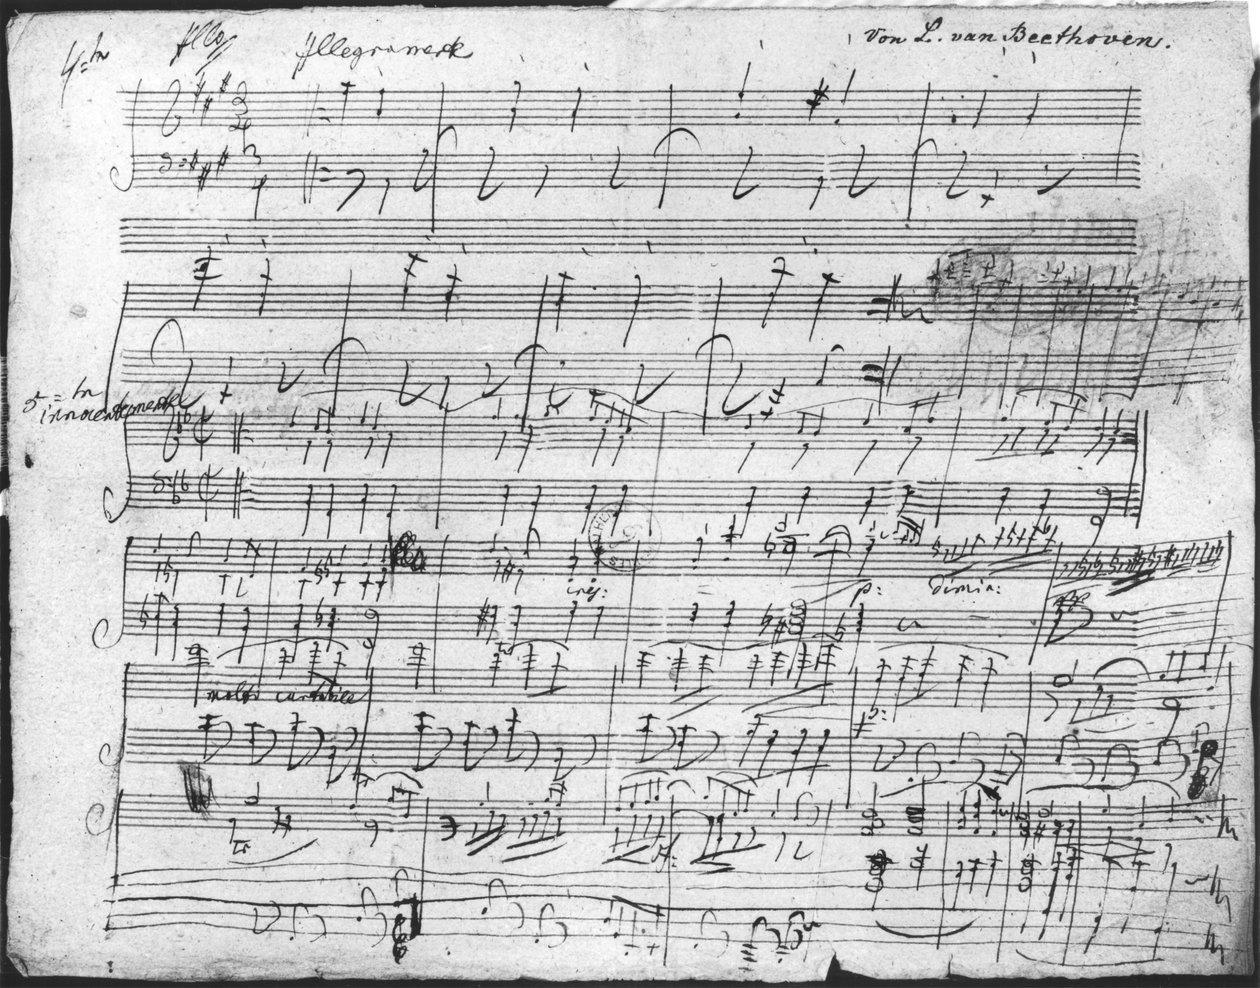 4=tn Allo Allegramente von L. van Beethoven.
5=tn
innocentemente
cresc:
p: dimin:
molto cantabile
p:
tr